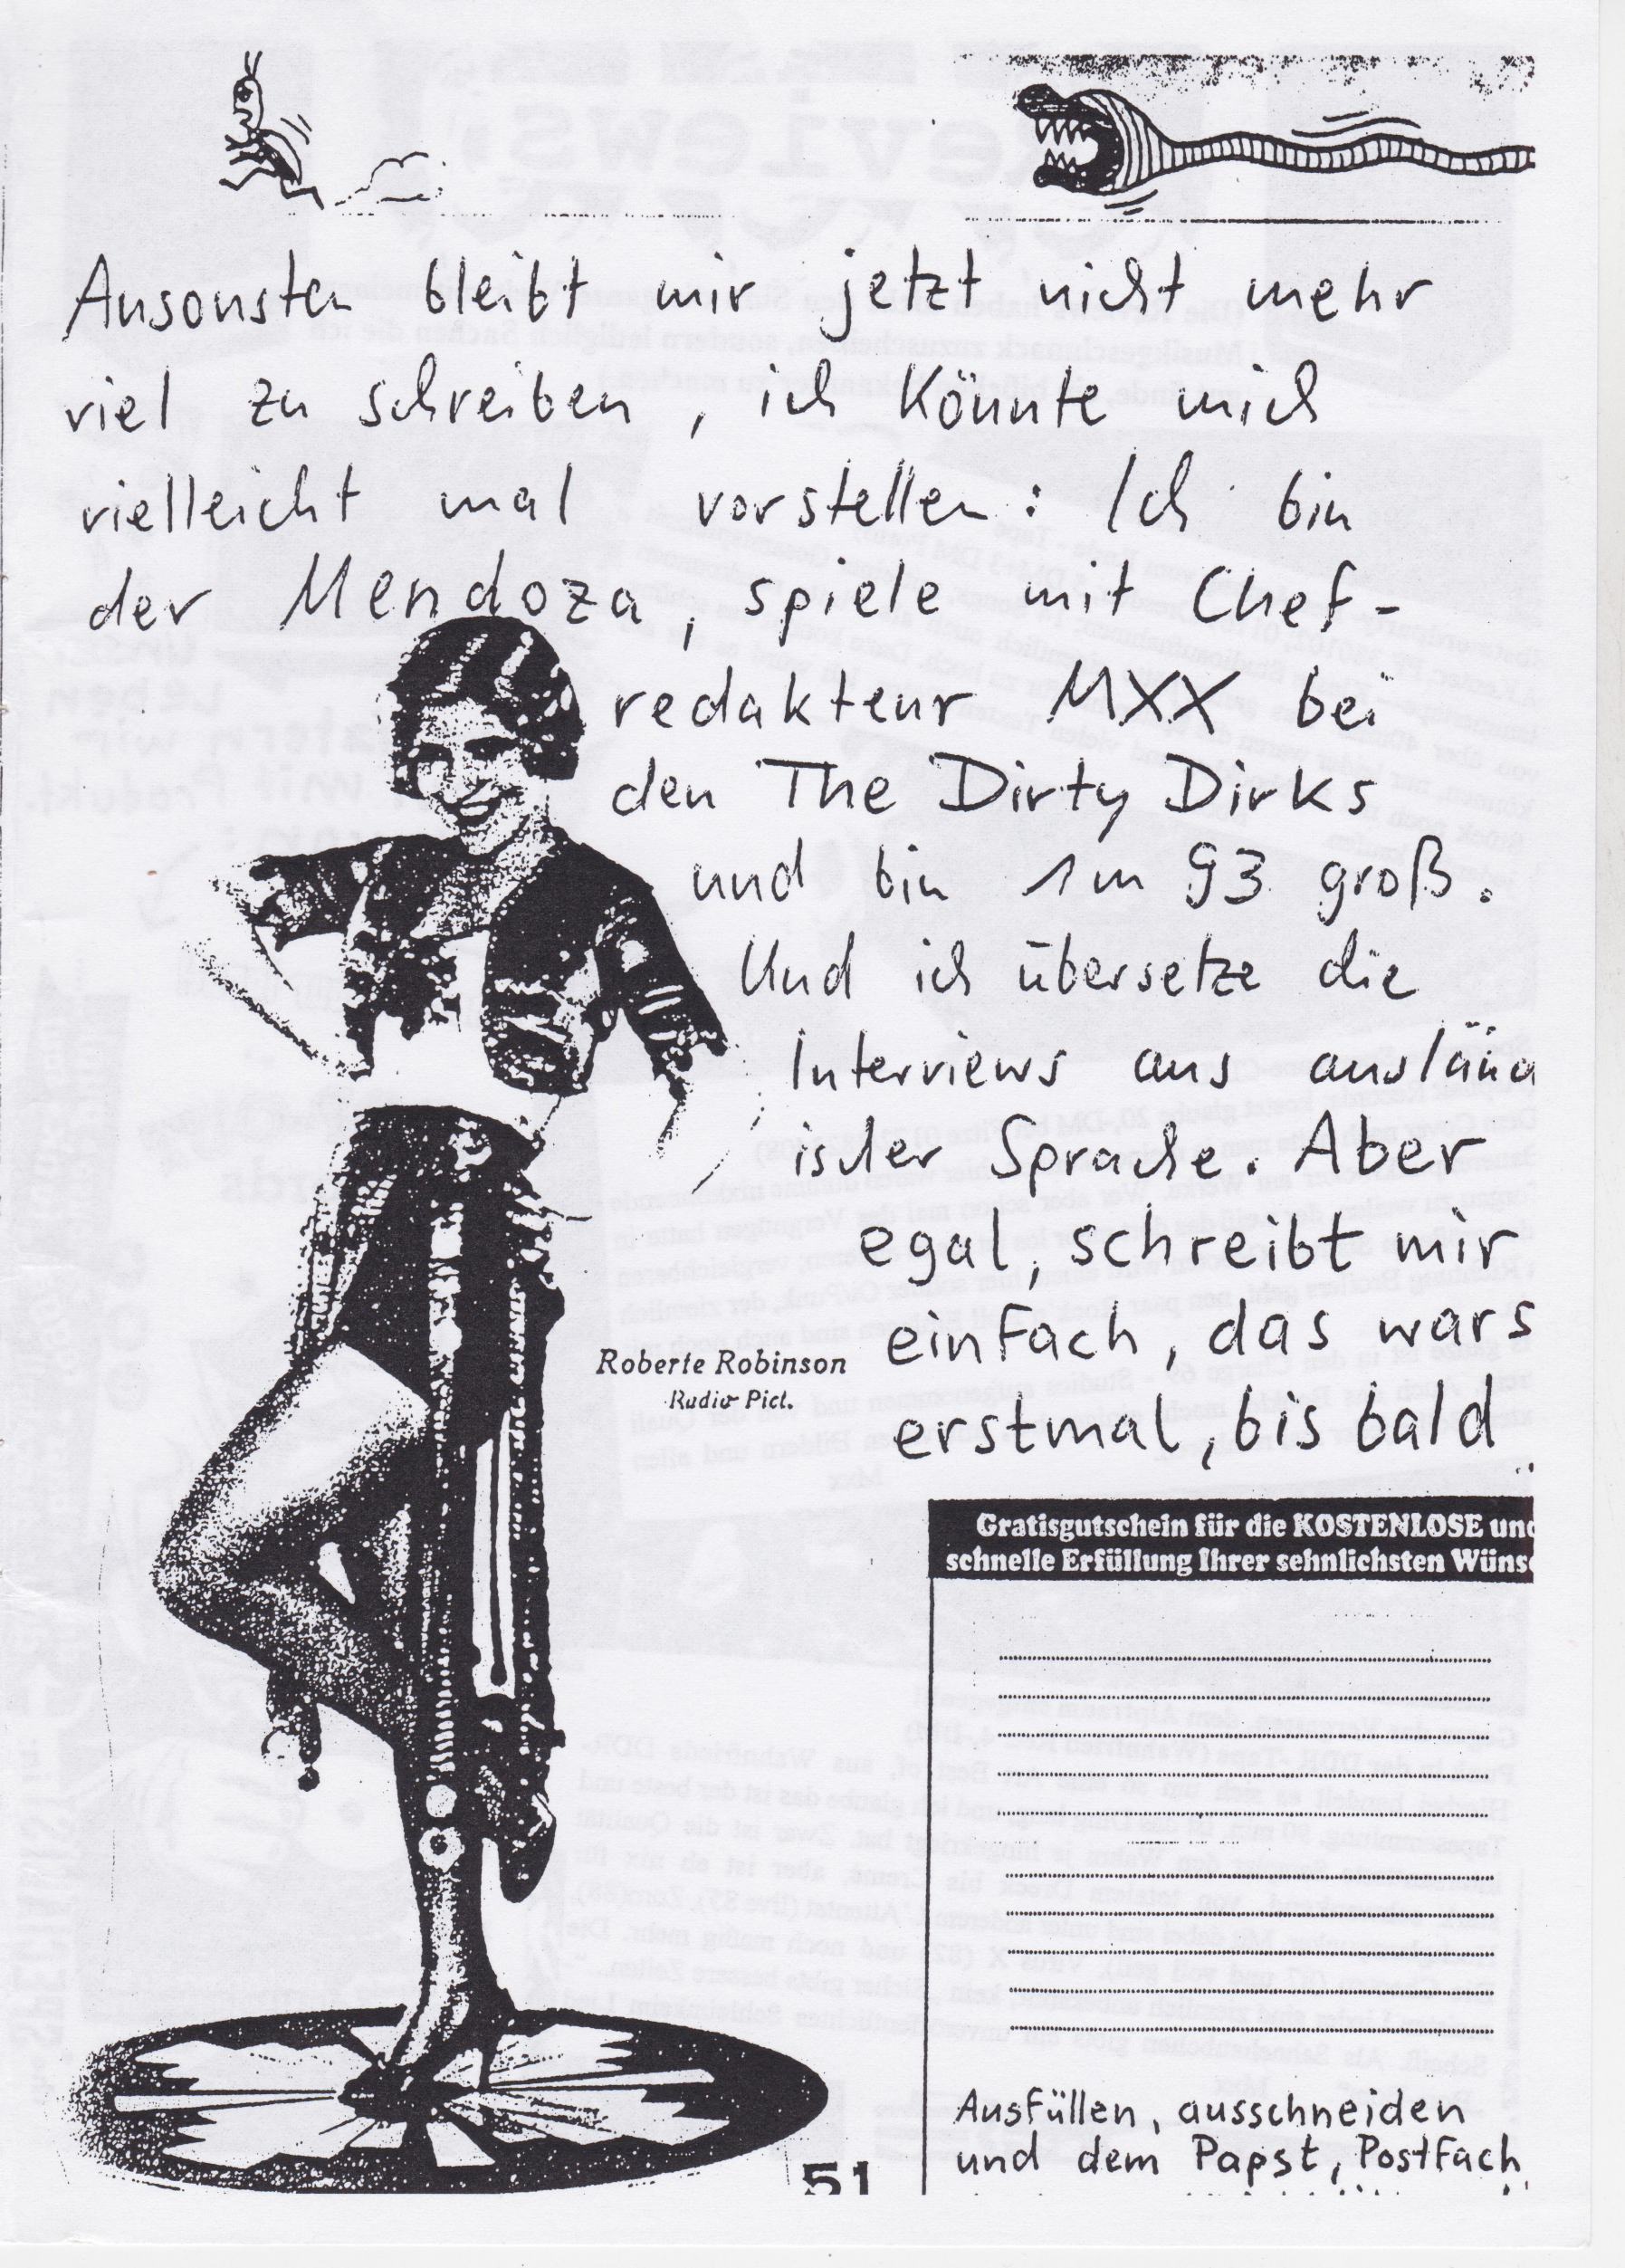 Ansonsten bleibt mir jetzt nicht mehr
viel zu schreiben, ich könnte mich
vielleicht mal vorstellen: Ich bin
der Mendoza, spiele mit Chef-
redakteur MXX bei
den The Dirty Dirks
und bin 1m 93 groß.
Und ich übersetze die
Interviews aus auslän
ischer Sprache. Aber
egal, schreibt mir
einfach, das wars
erstmal, bis bald
Roberte Robinson
Radio Pict.
Gratisgutschein für die KOSTENLOSE und
schnelle Erfüllung Ihrer sehnlichsten Wüns
Ausfüllen, ausschneiden
und dem Papst, Postfach
51